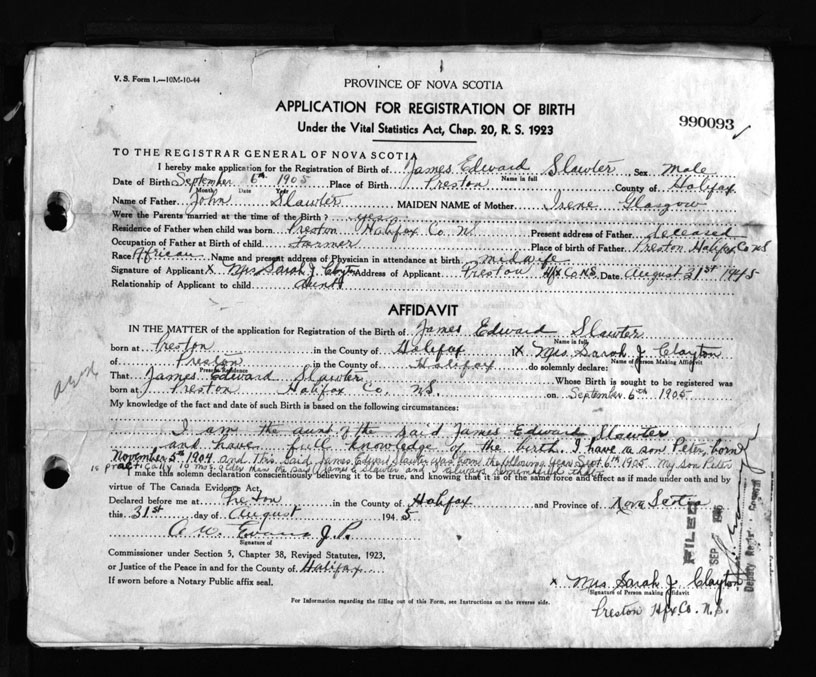 V. S. Form 1.—10M-10-44
PROVINCE OF NOVA SCOTIA
APPLICATION FOR REGISTRATION OF BIRTH
Under the Vital Statistics Act, Chap. 20, R. S. 1923
990093
TO THE REGISTRAR GENERAL OF NOVA SCOTIA
I hereby make application for the Registration of Birth of James Edward Slawter Sex Male
Name in full
Date of Birth September 6th 1905 Place of Birth Preston County of Halifax
Month Date Year
Name of Father John Slawter MAIDEN NAME of Mother Irene Glasgow
Were the Parents married at the time of the Birth? yes
Residence of Father when child was born Preston Halifax Co NS Present address of Father deceased
Occupation of Father at Birth of child Farmer Place of birth of Father Preston Halifax Co NS
Race African Name and present address of Physician in attendance at birth midwife
Signature of Applicant X Mrs Sarah J. Clayton Address of Applicant Preston Hfx Co NS. Date August 31st 1945
Relationship of Applicant to child Aunt
AFFIDAVIT
IN THE MATTER of the application for Registration of the Birth of James Edward Slawter
Name in full
born at Preston in the County of Halifax X Mrs. Sarah J Clayton
Name of Person Making Affidavit
of Preston in the County of Halifax do solemnly declare:
Present Residence
That James Edward Slawter Whose Birth is sought to be registered was
born at Preston Halifax Co. NS. on September 6th 1905
My knowledge of the fact and date of such Birth is based on the following circumstances:
I am the aunt of the said James Edward Slawter
and have full knowledge of the birth. I have a son Peter, born
November 5th 1904 and this said James Edward Slawter was born the following year Sept. 6th 1905 My son Peter
is practically 10 mos. older than the said James E Slawter and I always remember
I make this solemn declaration conscientiously believing it to be true, and knowing that it is of the same force and effect as if made under oath and by
virtue of The Canada Evidence Act.
Declared before me at Preston in the County of Halifax and Province of Nova Scotia
this 31st day of August 1945
Evans J.P.
Signature of
Commissioner under Section 5, Chapter 38, Revised Statutes, 1923,
or Justice of the Peace in and for the County of Halifax
If sworn before a Notary Public affix seal.
x Mrs Sarah J. Clayton
Signature of Person making Affidavit
Preston Hfx Co. N.S.
For Information regarding the filling out of this Form, see Instructions on the reverse side.
FILED
SEP
Deputy Registrar General